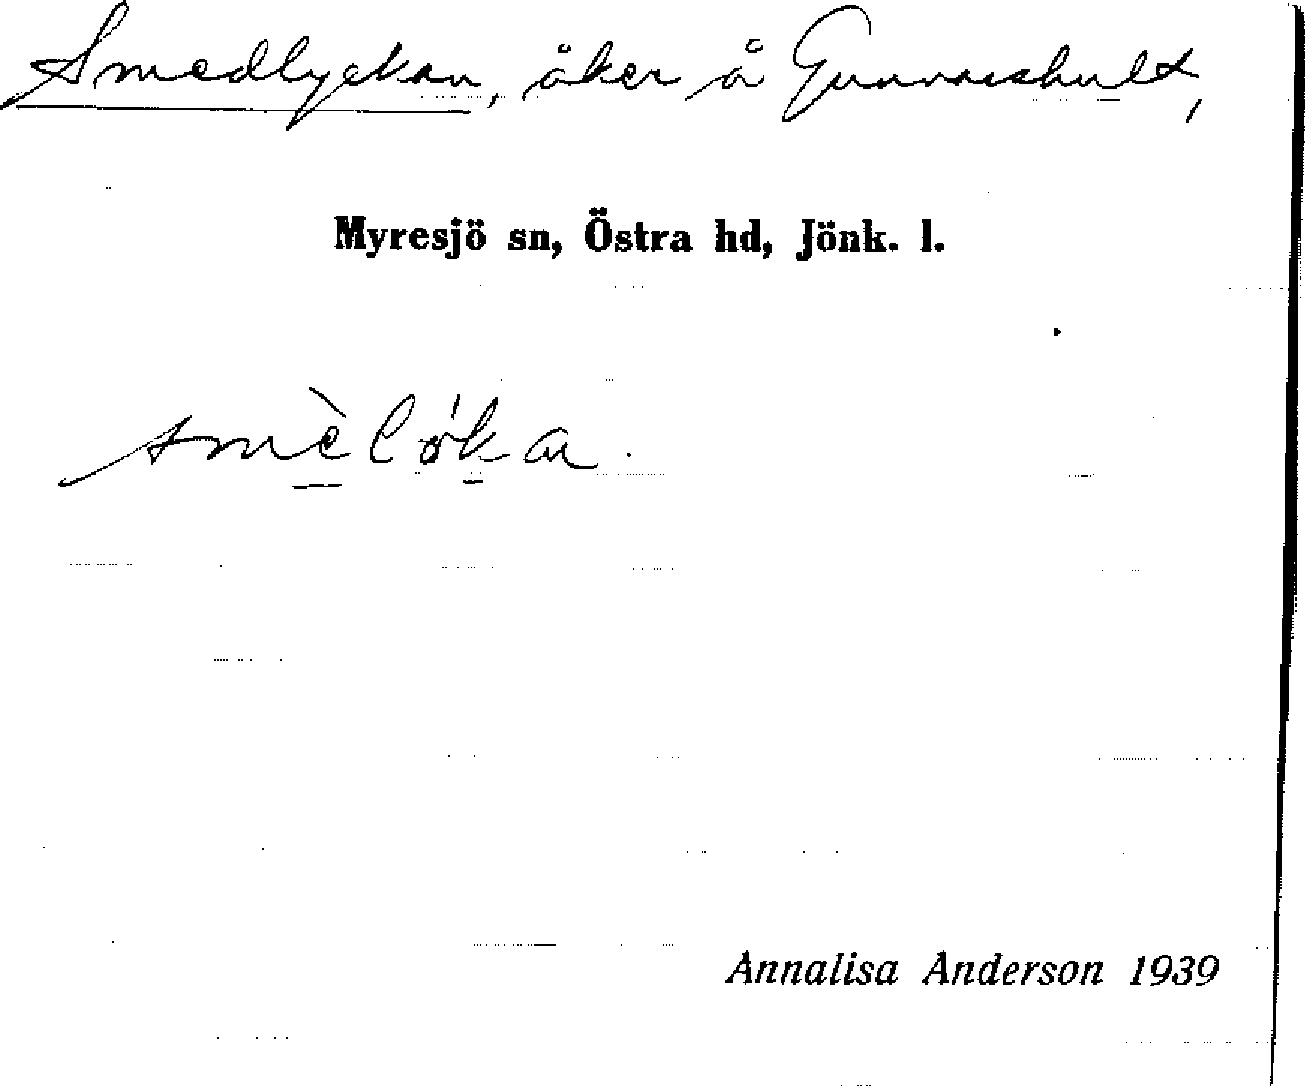 Smedlyckan, åker å Gunnarshult,
Myresjö sn, Östra hd, Jönk. l.
smèlo̍ka.
Annalisa Anderson 1939